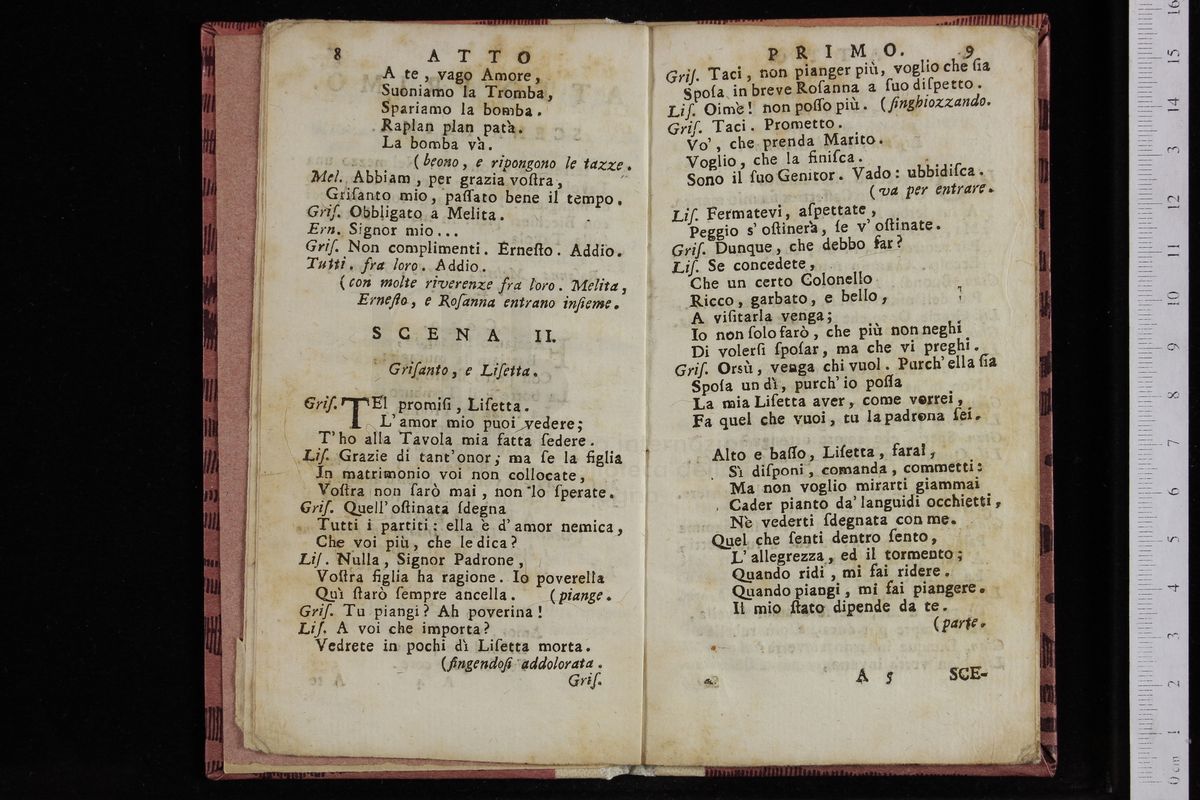 8 ATTO
A te, vago Amore,
Suoniamo la Tromba,
Spariamo la bomba.
Raplan plan patà.
La bomba và.
(beono, e ripongono le tazze.
Mel. Abbiam, per grazia voſtra,
Griſanto mio, paſſato bene il tempo.
Griſ. Obbligato a Melita.
Ern. Signor mio...
Griſ. Non complimenti. Erneſto. Addio.
Tutti. fra loro. Addio.
(con molte riverenze fra loro. Melita,
Erneſto, e Roſanna entrano inſieme.
SCENA II.
Griſanto, e Liſetta.
Griſ. TEl promiſi, Liſetta.
L'amor mio puoi vedere;
T'ho alla Tavola mia fatta ſedere.
Liſ. Grazie di tant'onor; ma ſe la figlia
In matrimonio voi non collocate,
Voſtra non ſarò mai, non lo ſperate.
Griſ. Quell'oſtinata ſdegna
Tutti i partiti: ella è d'amor nemica,
Che voi più, che le dica?
Liſ. Nulla, Signor Padrone,
Voſtra figlia ha ragione. Io poverella
Quì ſtarò ſempre ancella. (piange.
Griſ. Tu piangi? Ah poverina!
Liſ. A voi che importa?
Vedrete in pochi dì Liſetta morta.
(fingendoſi addolorata.
Griſ.
PRIMO. 9
Griſ. Taci, non pianger più, voglio che ſia
Spoſa in breve Roſanna a ſuo diſpetto.
Liſ. Oimè! non poſſo più. (ſinghiozzando.
Griſ. Taci. Prometto.
Vo', che prenda Marito.
Voglio, che la finiſca.
Sono il ſuo Genitor. Vado: ubbidiſca.
(va per entrare.
Liſ. Fermatevi, aſpettate,
Peggio s'oſtinerà, ſe v'oſtinate.
Griſ. Dunque, che debbo far?
Liſ. Se concedete,
Che un certo Colonello
Ricco, garbato, e bello,
A viſitarla venga;
Io non ſolo farò, che più non neghi
Di volerſi ſpoſar, ma che vi preghi.
Griſ. Orsù, venga chi vuol. Purch'ella ſia
Spoſa un dì, purch'io poſſa
La mia Liſetta aver, come vorrei,
Fa quel che vuoi, tu la padrona ſei.
Alto e baſſo, Liſetta, farai,
Sì diſponi, comanda, commetti:
Ma non voglio mirarti giammai
Cader pianto da'languidi occhietti,
Nè vederti ſdegnata con me.
Quel che ſenti dentro ſento,
L'allegrezza, ed il tormento;
Quando ridi, mi fai ridere.
Quando piangi, mi fai piangere.
Il mio ſtato dipende da te.
(parte.
A 5 SCE-